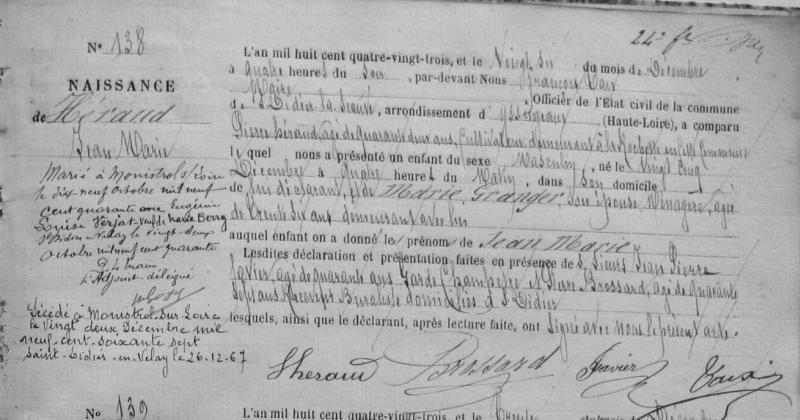 N° 138
NAISSANCE
de Héraud
Jean Marie
Marié à Monistrol s/Loire
le dix neuf octobre mil neuf
cent quarante avec Eugénie
Louise Verjat veuf de Marie Berry
St Didier en Velay le vingt-deux
octobre mil neuf cent quarante
L'Adjoint-délégué
Décédé à Monistrol-sur-Loire
le vingt deux Décembre mil
neuf cent soixante sept
Saint-Didier-en-Velay le 26.12.67
L'an mil huit cent quatre-vingt-trois, et le Vingt Six du mois de Décembre
à quatre heures du Soir, par-devant Nous François
Maire, Officier de l'État civil de la commune
de St Didier-la-Séauve, arrondissement d'Yssingeaux (Haute-Loire), a comparu
Pierre Héraud, âgé de quarante deux ans, cultivateur demeurant à la Rochette en cette Commune
lequel nous a présenté un enfant du sexe Masculin, né le Vingt Cinq
Décembre à quatre heures du Matin, dans Son domicile
de lui déclarant, et de Marie Granger, Son épouse Ménagère, âgée
de trente six ans demeurant avec lui
auquel enfant on a donné le prénom de Jean Marie
Lesdites déclaration et présentation faites en présence de S. Sieurs Jean Pierre
Favier, âgé de quarante ans Garde Champêtre et Pierre Brossard, âgé de quarante
Sept ans, Receveur Buraliste domiciliés à St Didier
lesquels, ainsi que le déclarant, après lecture faite, ont Signé avec nous le présent acte.
Heraud Brossard Favier
N° 139
L'an mil huit cent quatre-vingt-trois, et le